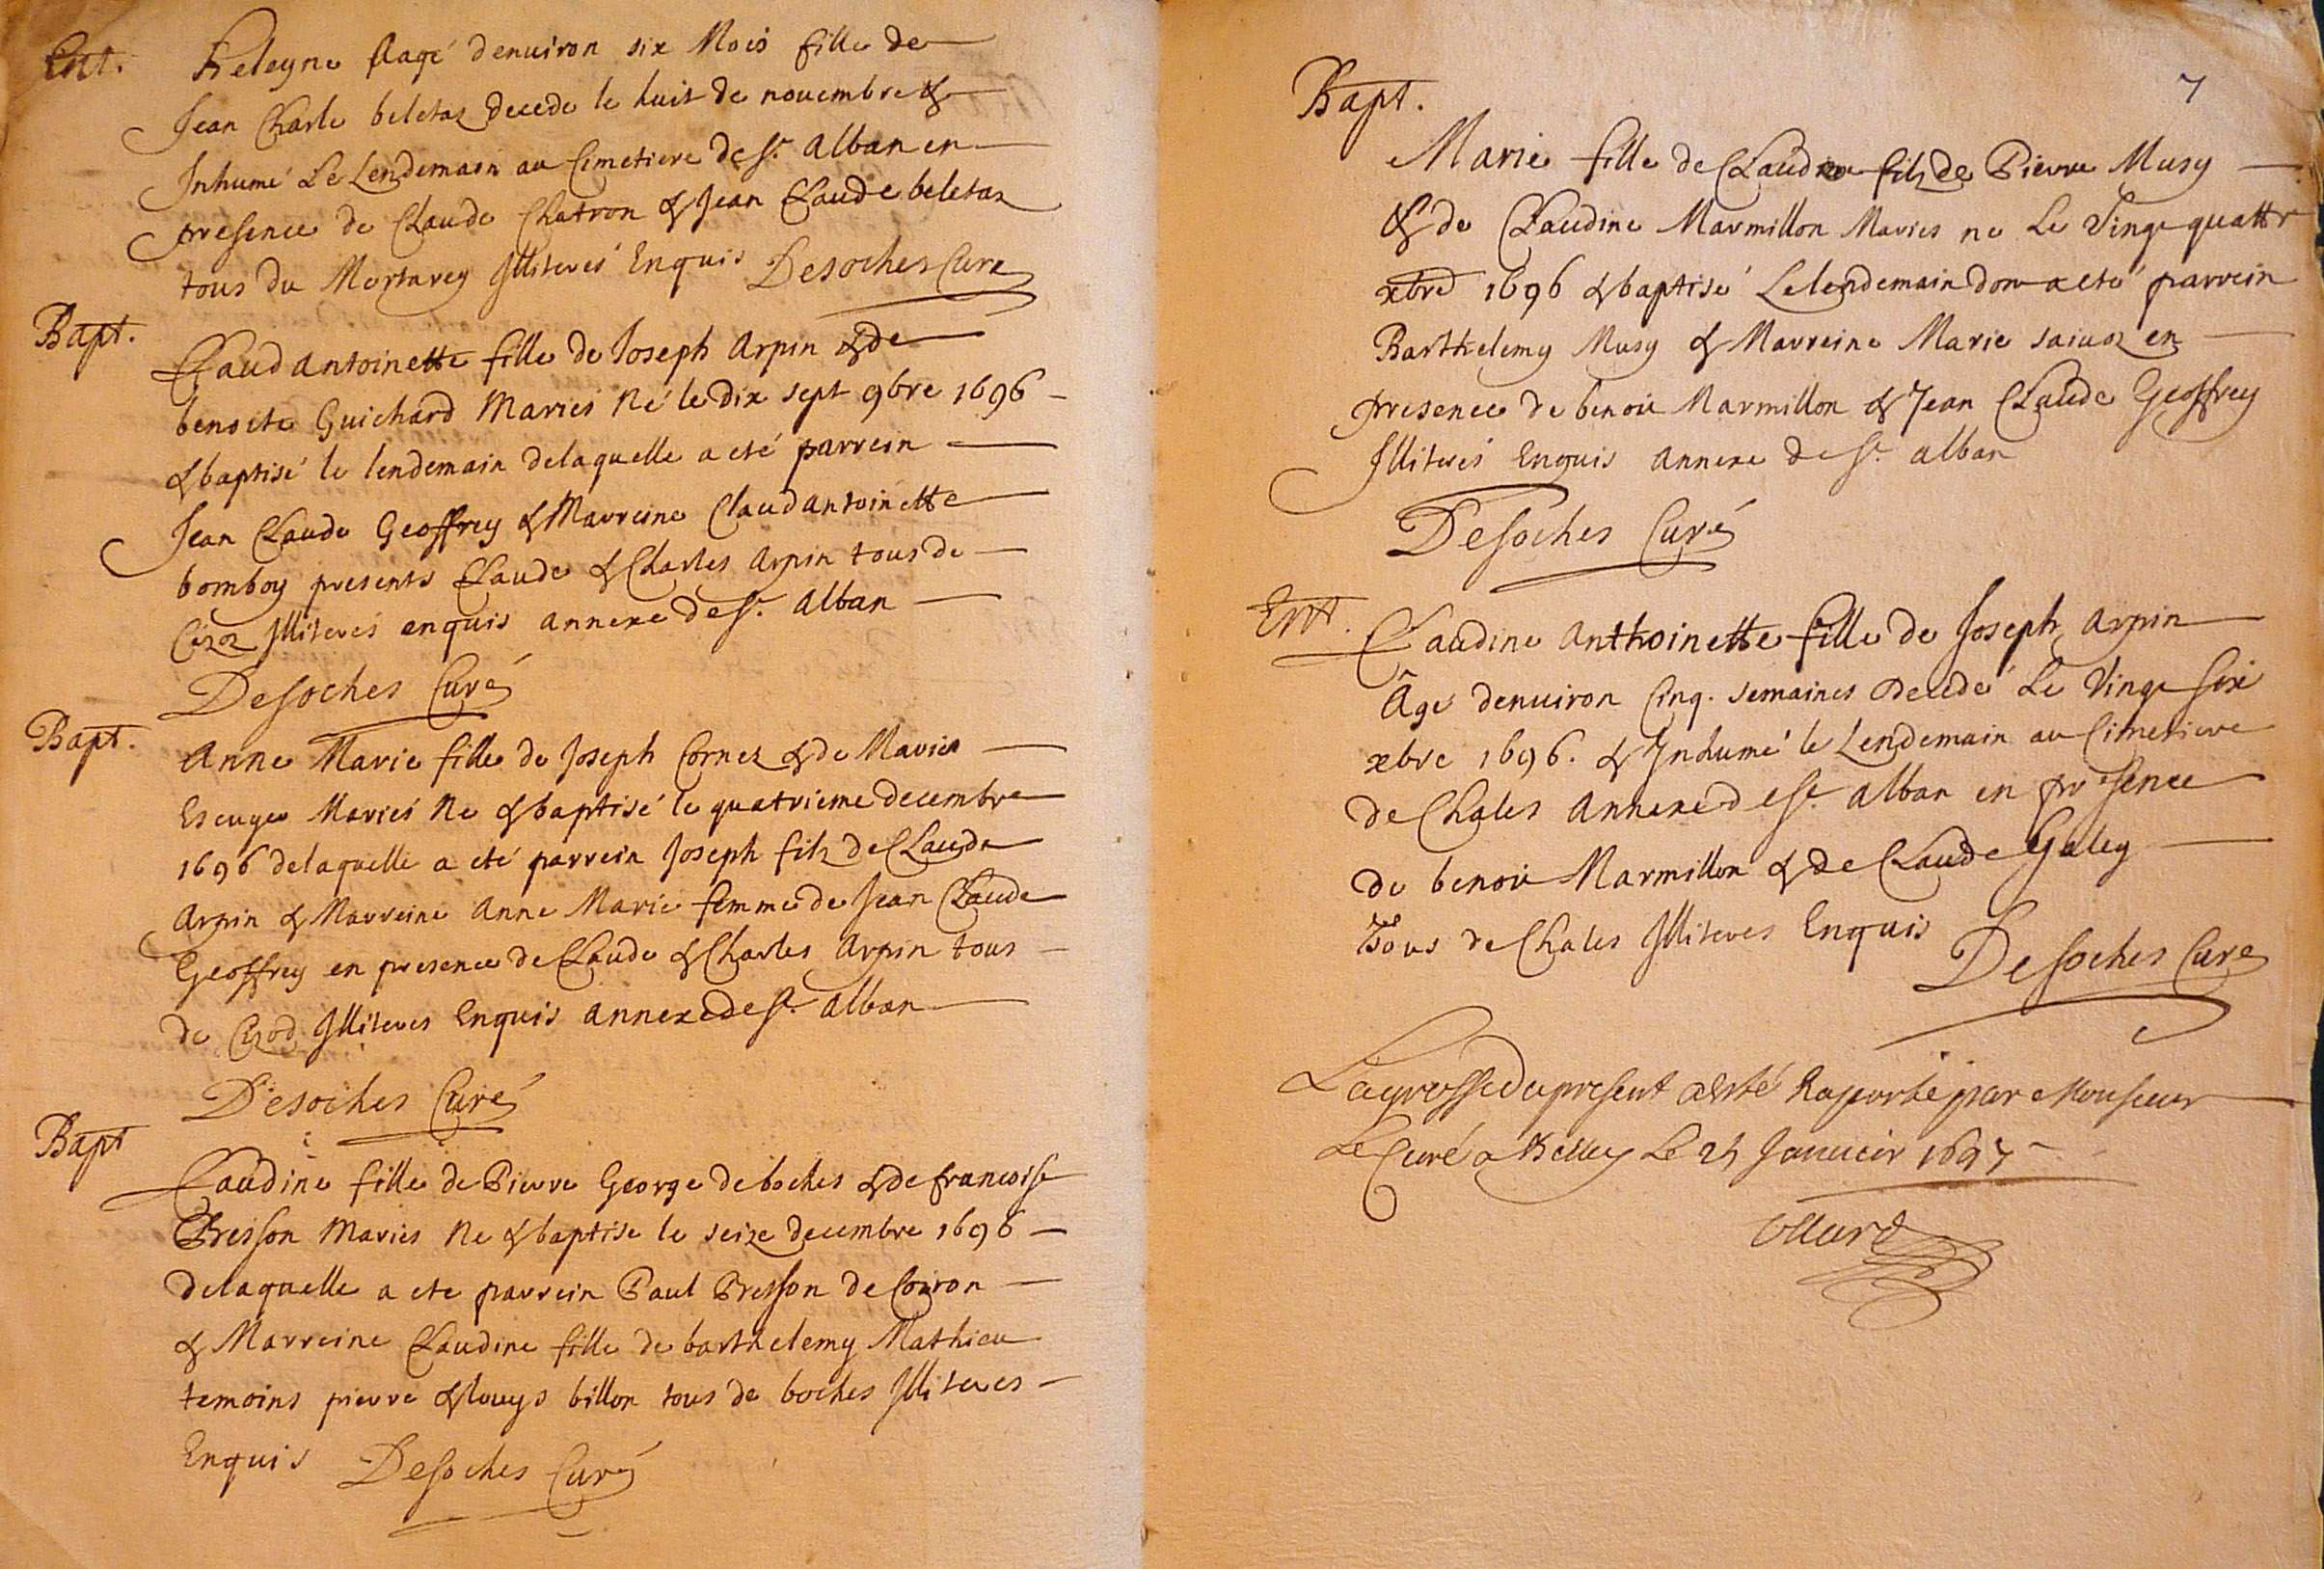 Ent.
Heleyne aagé denuiron six Mois fille de
Jean Charle beletaz decede le huit de nouembre &
Inhumé Le Lendemain au Cimetiere de St. alban en
presence de Claude Chatron & Jean Claude beletaz
tous du Mortarey Illiterés Enquis Desoches Curé
Bapt.
Claud antoinette fille de Joseph arpin & de
benoite Guichard Mariés Né le dix sept 9bre 1696
& baptisé le lendemain delaquelle a eté parrein
Jean Claude Geoffrey & Marreine Claud antoinette
bomboy presents Claude & Charles arpin tous de
Cizoz Illiterés enquis annexe de St. alban
Desoches Curé
Bapt.
Anne Marie fille de Joseph Cornez & de Marie
Mariés Ne & baptisé le quatrieme decembre
1696 delaquelle a eté parrein Joseph filz de Claude
Arpin & Marreine Anne Marie femme de Jean Claude
Geoffrey en presence de Claude & Charles Arpin tous
de Cizod Illiteres Enquis annexe de St. alban
Desoches Curé
Bapt
Claudine fille de Pierre George de boches & de francoise
Bresson Mariés Ne & baptise le seize decembre 1696
delaquelle a ete parrein Paul Bresson de Coiron
& Marreine Claudine fille de barthelemy Mathieu
temoins pierre & louys billon tous de boches Illiteres
Enquis Desoches Curé
7
Bapt.
Marie fille de Claude filz de Pierre Musy
& de Claudine Marmillon Maries ne Le Vingt quattr
xbre 1696 & baptisé Lelendemain don a eté parrein
Barthelemy Musy & Marreine Marie en
presence de benoit Marmillon & Jean Claude Geoffrey
Illiterés Enquis annexe de St. alban
Desoches Curé
Ent.
Claudine anthoinette fille de Joseph arpin
âge denuiron Cinq. semaines decedé Le Vingt six
xbre 1696. & Inhumé le Lendemain au Cimetiere
de Chales annexe de St. alban en presence
de benoit Marmillon & de Claude Galey
Tous de Chales Illiteres Enquis
Desoches Cure
La grosse du present a esté Raporté par Monsieur
Le Curé a Belley Le Januier 1697